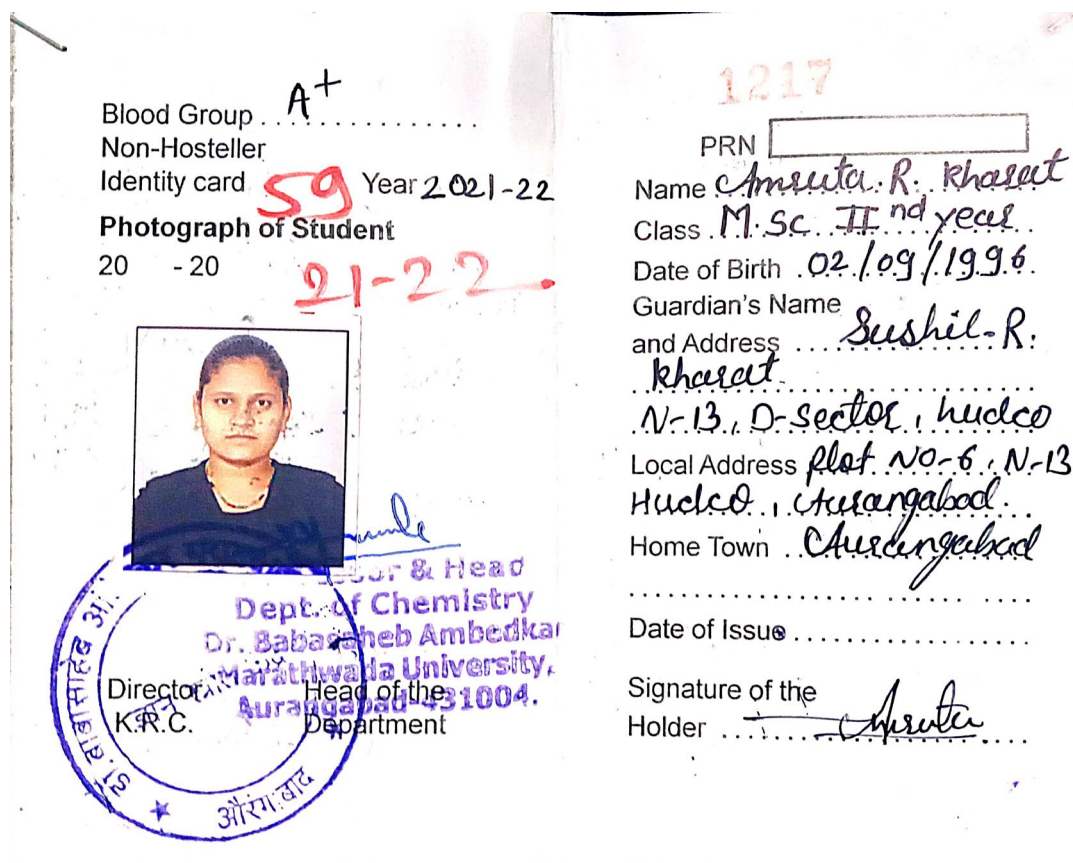 Blood Group A+
Non-Hosteller
Identity card 59 Year 2021-22
Photograph of Student
20 - 20
21-22
& Head
Dept. of Chemistry
Dr. Babasaheb Ambedkar
Marathwada University,
Aurangabad-431004.
Director Head of the
K.R.C. Department
डॉ. बाबासाहेब आं.
औरंगाबाद
1217
PRN
Name Amruta. R. Kharat
Class M.Sc IInd year
Date of Birth 02/09/1996.
Guardian's Name
and Address Sushil-R.
Kharat
N-13, D-Sector, hudco
Local Address Plot NO-6, N-13
Hudco, Aurangabad.
Home Town Aurangabad
Date of Issue
Signature of the
Holder Amruta